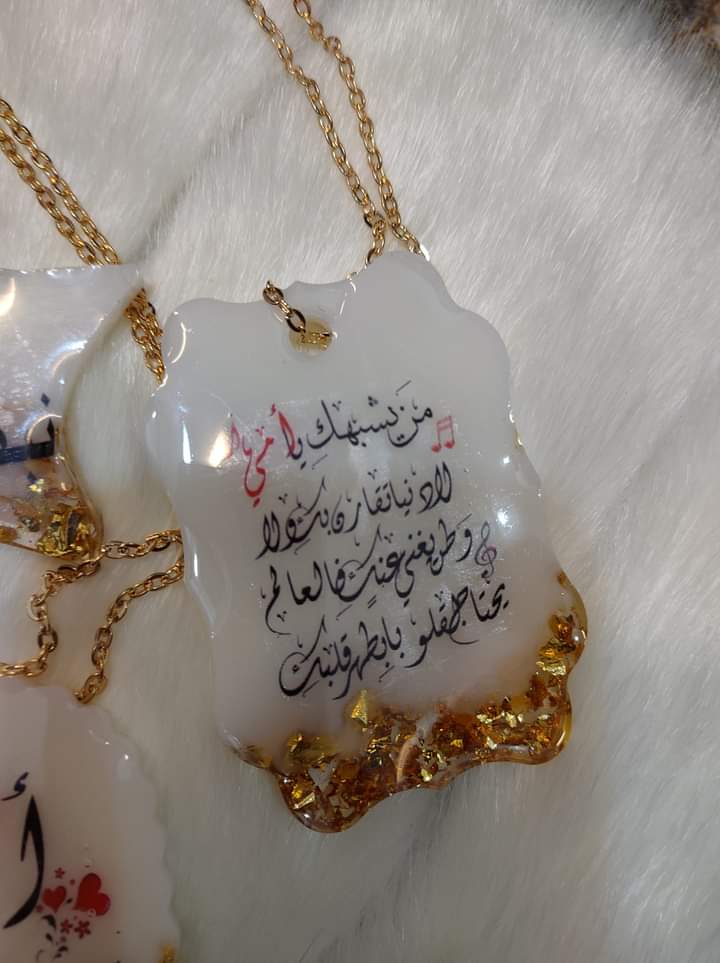 من يشبهكِ يا أمي
لا دنيا تقارن بك ولا
وطن يغني عنكِ فالعالم
يحتاج قلوبا بطهر قلبك
أ